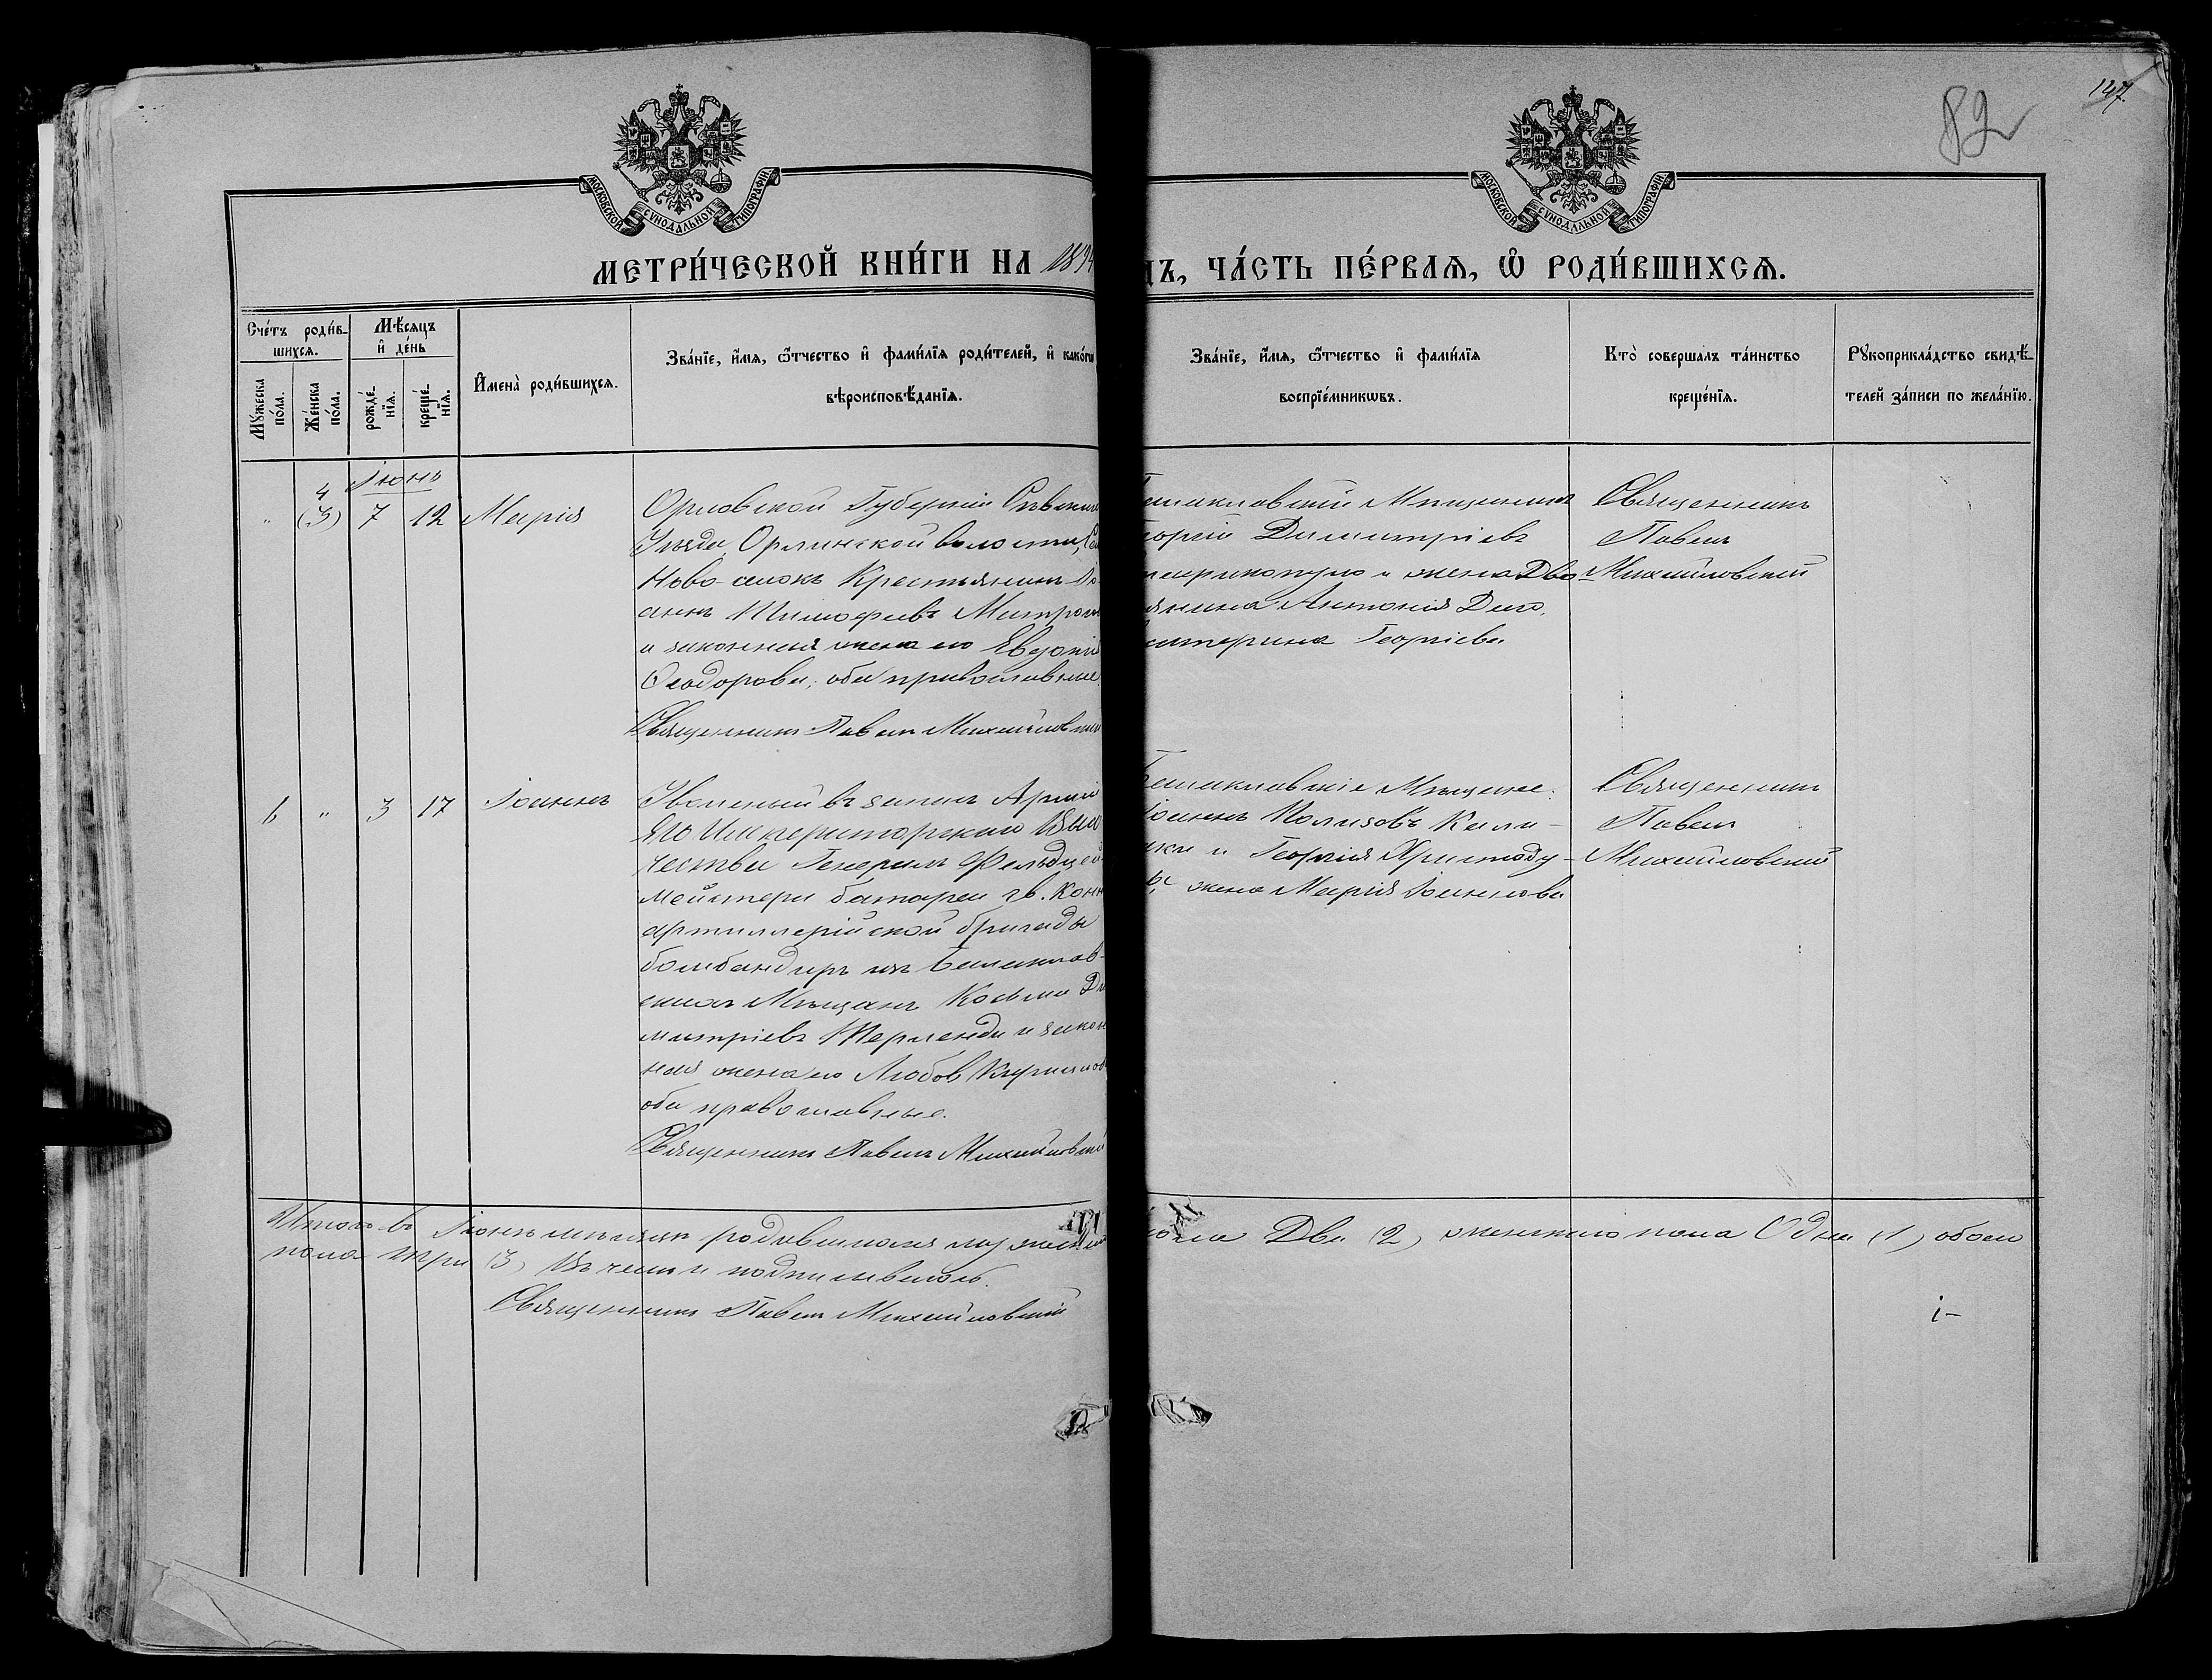 147.
82
МОСКОВСКОЙ СѴНОДАЛЬНОЙ ТИПОГРАФІИ
МОСКОВСКОЙ СѴНОДАЛЬНОЙ ТИПОГРАФІИ
МЕТРИ́ЧЕСКОЙ КНИ́ГИ НА 1894
ДЪ, ЧА́СТЬ ПЕ́РВАЯ, Ѿ РОДИ́ВШИХСЯ.
Сче́тъ роди́вшихся.
Му́жеска по́ла.
Же́нска по́ла.
Мѣ́сяцъ и де́нь
рожде́нїя.
креще́нїя.
Имена̀ роди́вшихся.
Зва́нїе, и́мя, ѻ҆́тчество и фами́лїя роди́телей, и како́гѡ
вѣроисповѣ́данїя.
Зва́нїе, и́мя, ѻ҆́тчество и фами́лїя
воспрїе́мникѡвъ.
Кто̀ соверша́лъ та́инство
креще́нїя.
Рꙋкоприкла́дство свидѣ́-
телей за́писи по жела́нїю.
Іюнь
4
" (3) 7 12 Марія
Орловской Губерніи Сѣвск
Уѣзда, Орлинской волости,
Ново-селокъ Крестьянинъ Іо-
аннъ Тимофеевъ Митро
и законная жена его Евдокі
Ѳеодорова; оба православные.
Священникъ Павелъ Михайловскі
Мѣщанинъ
еоргій Димитріевъ
и жена Дво-
рянина Антонія
катерина Георгіева
Священникъ
Павелъ
Михайловскій
6 " 3 17 Іоаннъ
Уволеный въ запасъ Арміи
Его Императорскаго Высо
чества Генералъ Фельдцей
мейстера батареи гв. Конн
артиллерійской бригады
бомбандиръ изъ Балаклав-
скихъ Мѣщанъ Косьма Ди
митріевъ и закон
ная жена его Любов Кирилов
оба православные.
Священникъ Павелъ Михайловскій
Балаклавскіе Мѣщане:
Іоаннъ
и Георгія Христоду-
жена Марія Іоаннова
Священникъ
Павелъ
Михайловскій
Итого въ Іюнѣ мѣсяцѣ родившихся мужеска
пола Два (2), женскаго пола Одна (1), обоего
пола три (3), Въ чемъ и подписываюсь.
Священникъ Павелъ Михайловскій